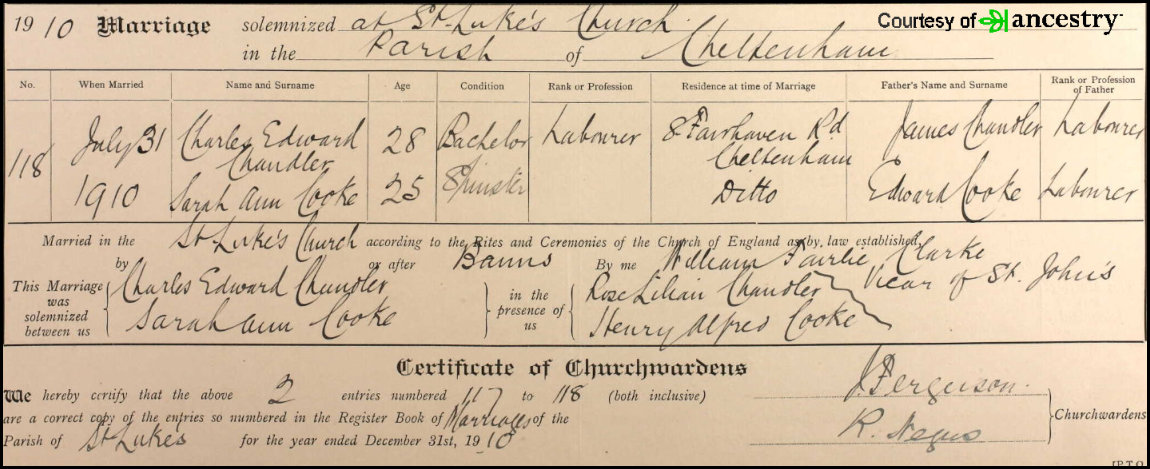 Courtesy of ancestry
19 10 Marriage solemnized at St Luke's Church
in the Parish of Cheltenham
No. When Married Name and Surname Age Condition Rank or Profession Residence at time of Marriage Father's Name and Surname Rank or Profession of Father
118 July 31 Charles Edward Chandler 28 Bachelor Labourer 8 Fairhaven Rd Cheltenham James Chandler Labourer
1910 Sarah Ann Cooke 25 Spinster Ditto Edward Cooke Labourer
Married in the St Luke's Church according to the Rites and Ceremonies of the Church of England as by law established,
by or after Banns By me William Fairlie Clarke
Vicar of St. John's
This Marriage was solemnized between us
Charles Edward Chandler
Sarah Ann Cooke
in the presence of us
Rose Lilian Chandler
Henry Alfred Cooke
Certificate of Churchwardens
We hereby certify that the above 2 entries numbered 117 to 118 (both inclusive)
are a correct copy of the entries so numbered in the Register Book of Marriages of the
Parish of St Luke's for the year ended December 31st, 19 10
J. Ferguson.
R. Negus
Churchwardens
[P.T.O.